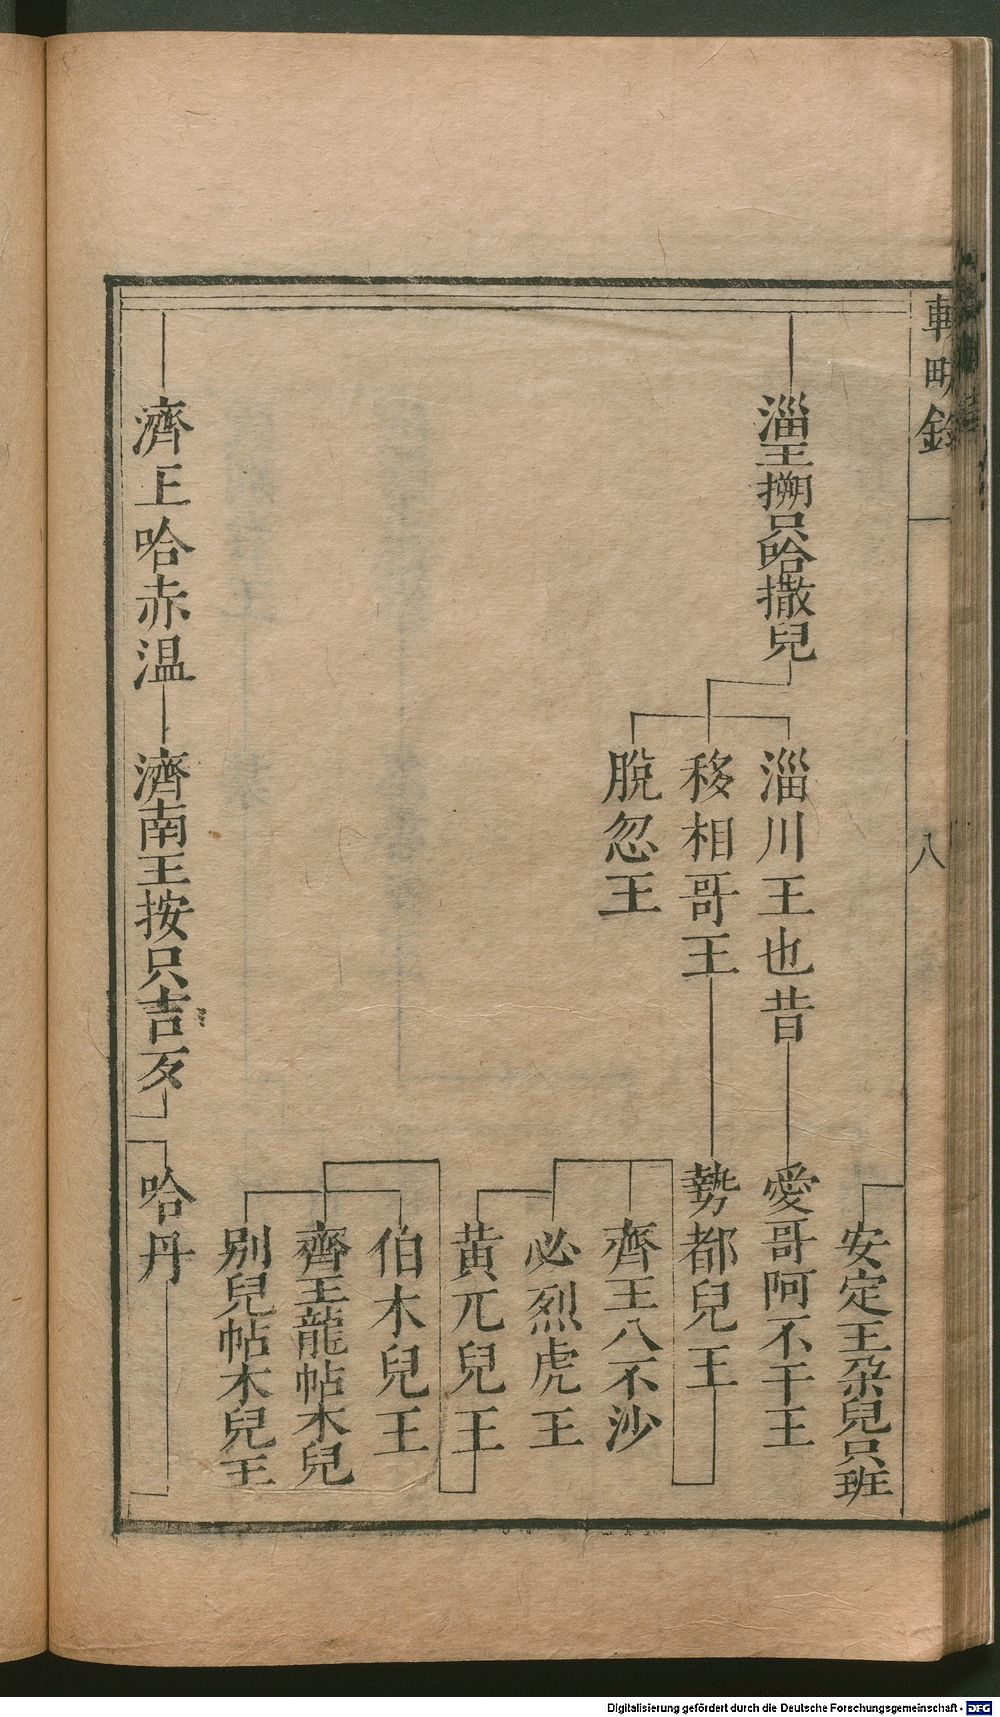 輟畊錄
八
淄王搠只哈撒兒
淄川王也昔
移相哥王
脫忽王
安定王朶兒只班
愛哥阿不干王
勢都兒王
齊王八不沙
必烈虎王
黃兀兒王
伯木兒王
齊王龍帖木兒
別兒帖木兒王
濟王哈赤温
濟南王按只吉歹
哈丹
Digitalisierung gefördert durch die Deutsche Forschungsgemeinschaft - DFG